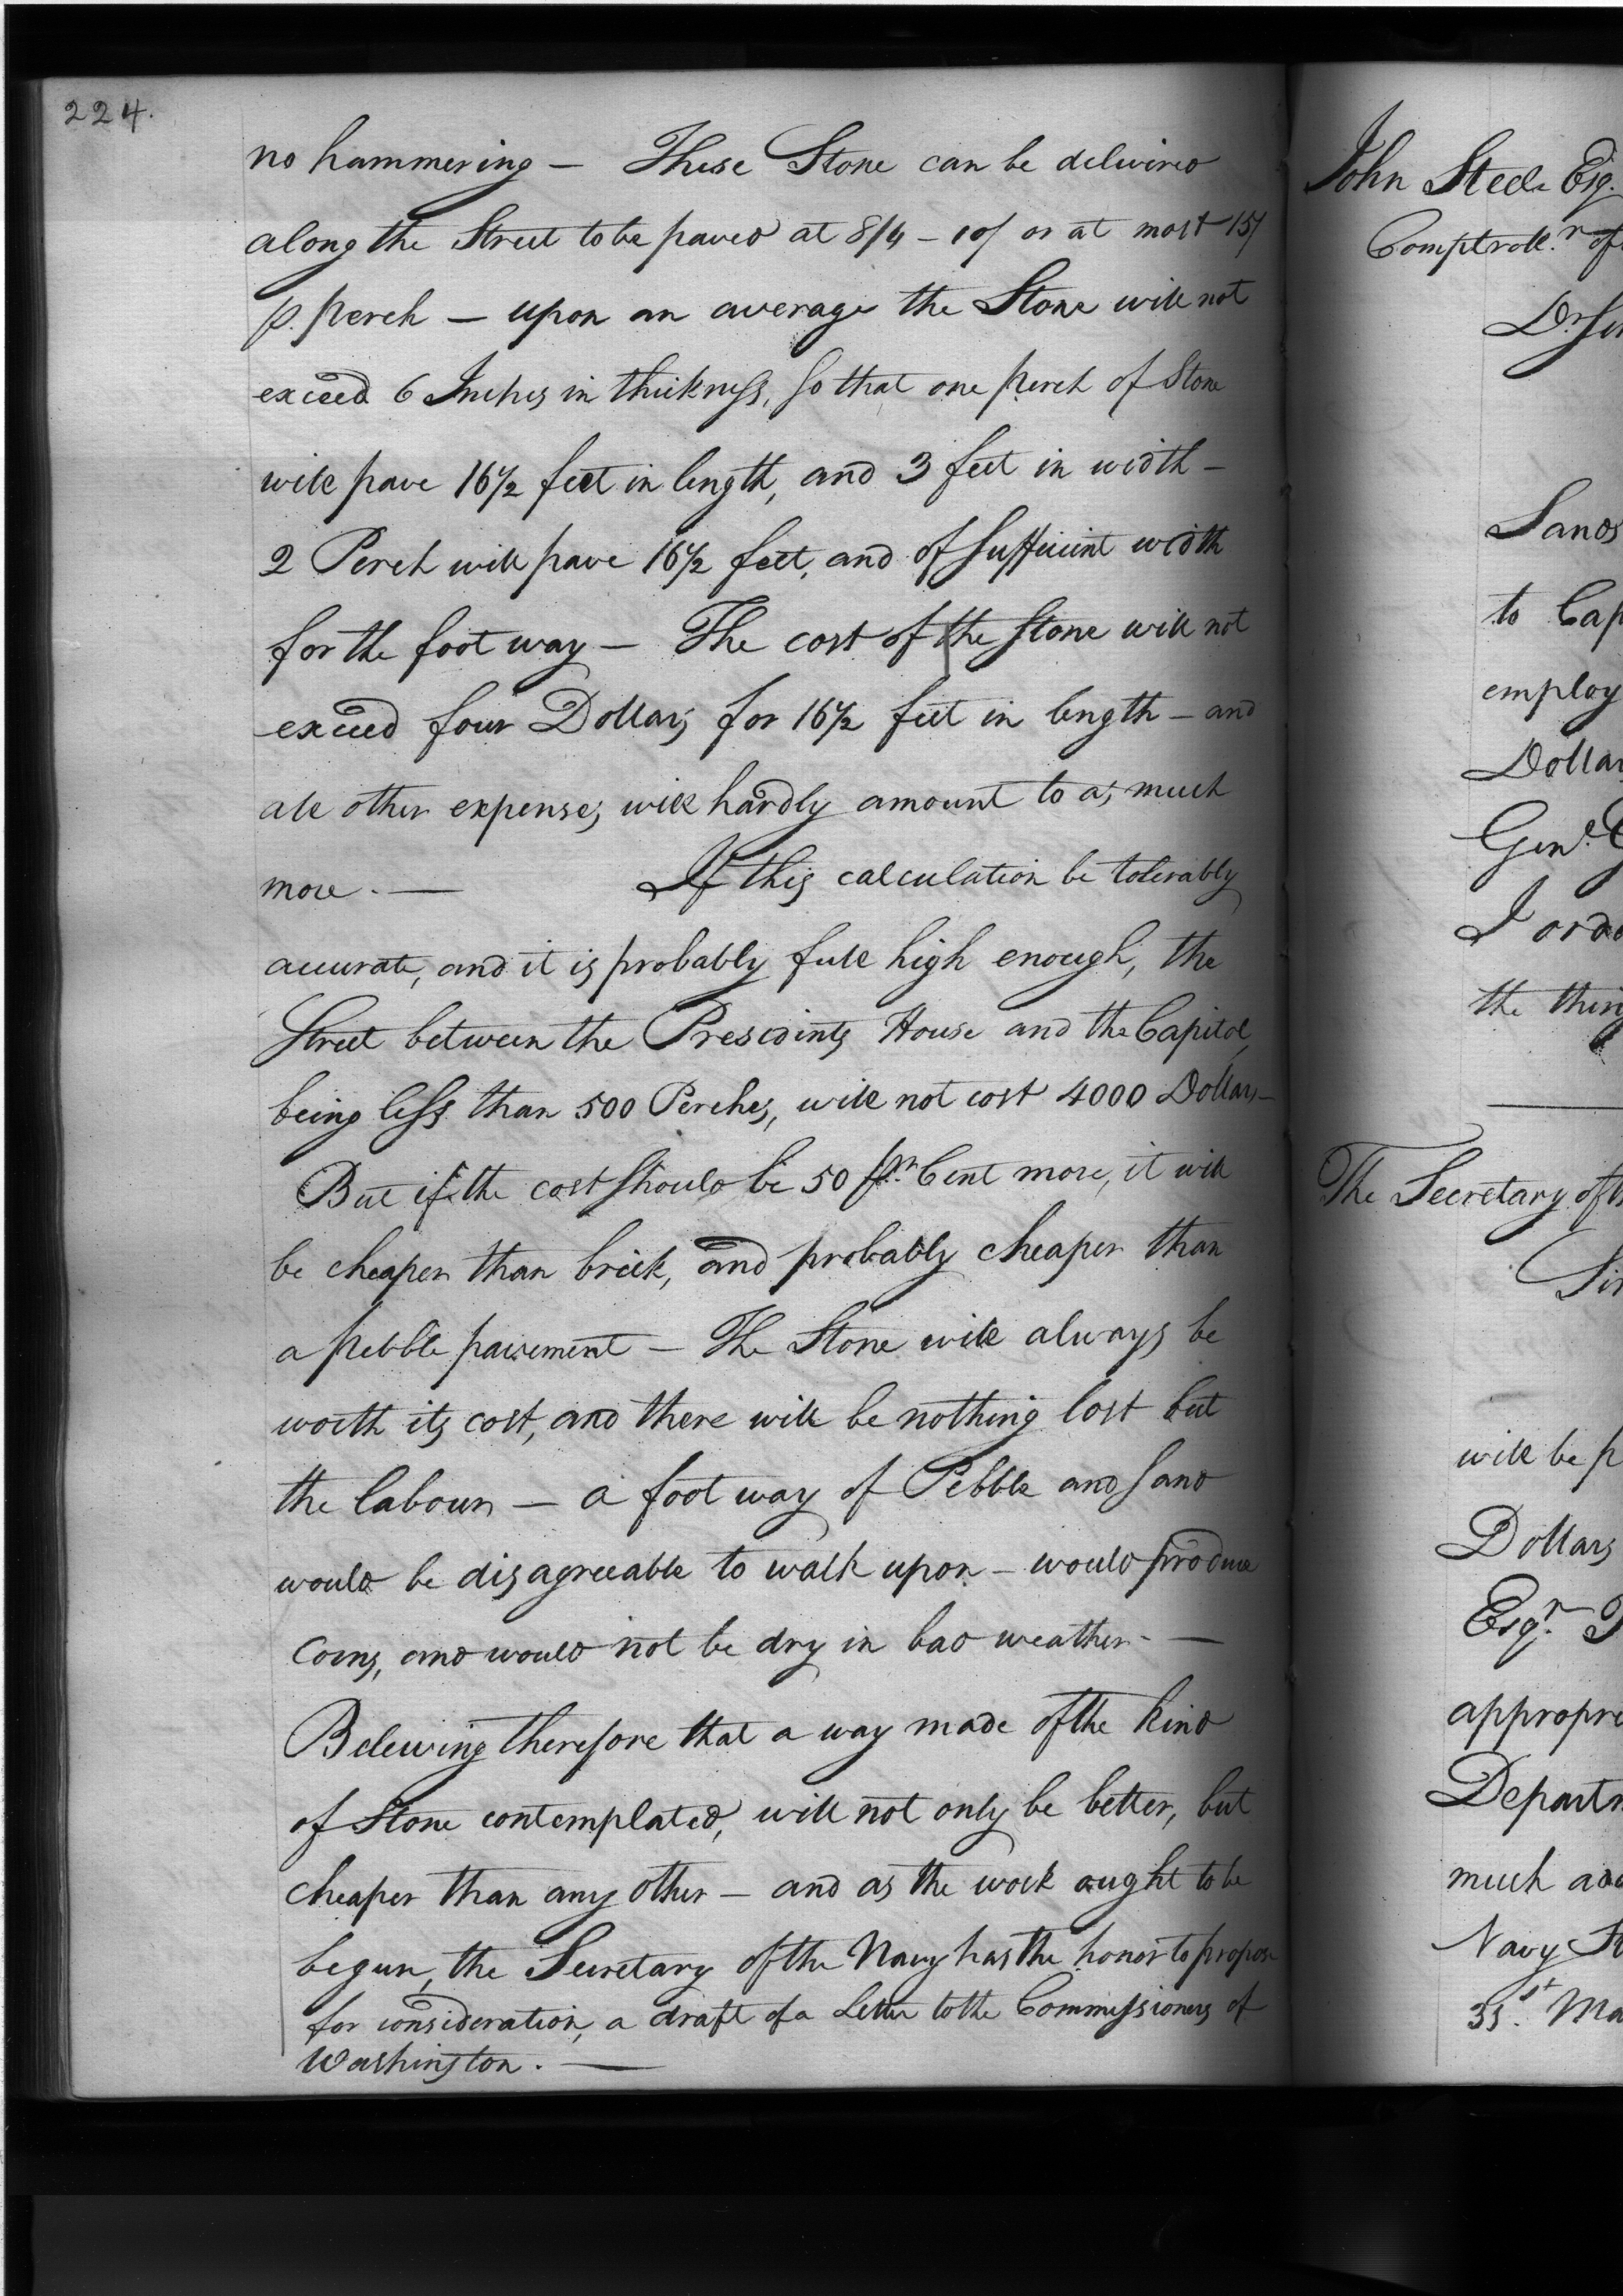 224.
no hammering — These Stone can be delivered
along the Street to be paved at 8/4 – 10/ or at most 15/
p. perch — upon an average the Stone will not
exceed 6 Inches in thickness, so that one perch of Stone
will pave 16½ feet in length, and 3 feet in width —
2 Perch will pave 16½ feet, and of sufficient width
for the foot way — The cost of the stone will not
exceed four Dollars for 16½ feet in length — and
all other expenses will hardly amount to as much
more. — If this calculation be tolerably
accurate, and it is probably full high enough, the
Street between the Presidents House and the Capitol,
being less than 500 Perches, will not cost 4000 Dollars —
But if the cost should be 50 pr. Cent more, it will
be cheaper than brick, and probably cheaper than
a pebble pavement — The Stone will always be
worth its cost, and there will be nothing lost but
the labour — a foot way of Pebble and sand
would be disagreeable to walk upon — would produce
Corns, and would not be dry in bad weather. —
Beleiving therefore that a way made of the kind
of Stone contemplated, will not only be better, but
cheaper than any other — and as the work ought to be
begun, the Secretary of the Navy has the honor to propose
for consideration, a draft of a Letter to the Commissioners of
Washington. —
John Steele Esq.
Comptroll.r of
Dr Sir
Sands
to Cap
employ
Dollar
Genl.
I
the thin
The Secretary of th
Sir
will be p
Dollars
Esqr.
appropri
Departm
much
Navy
31st. Ma